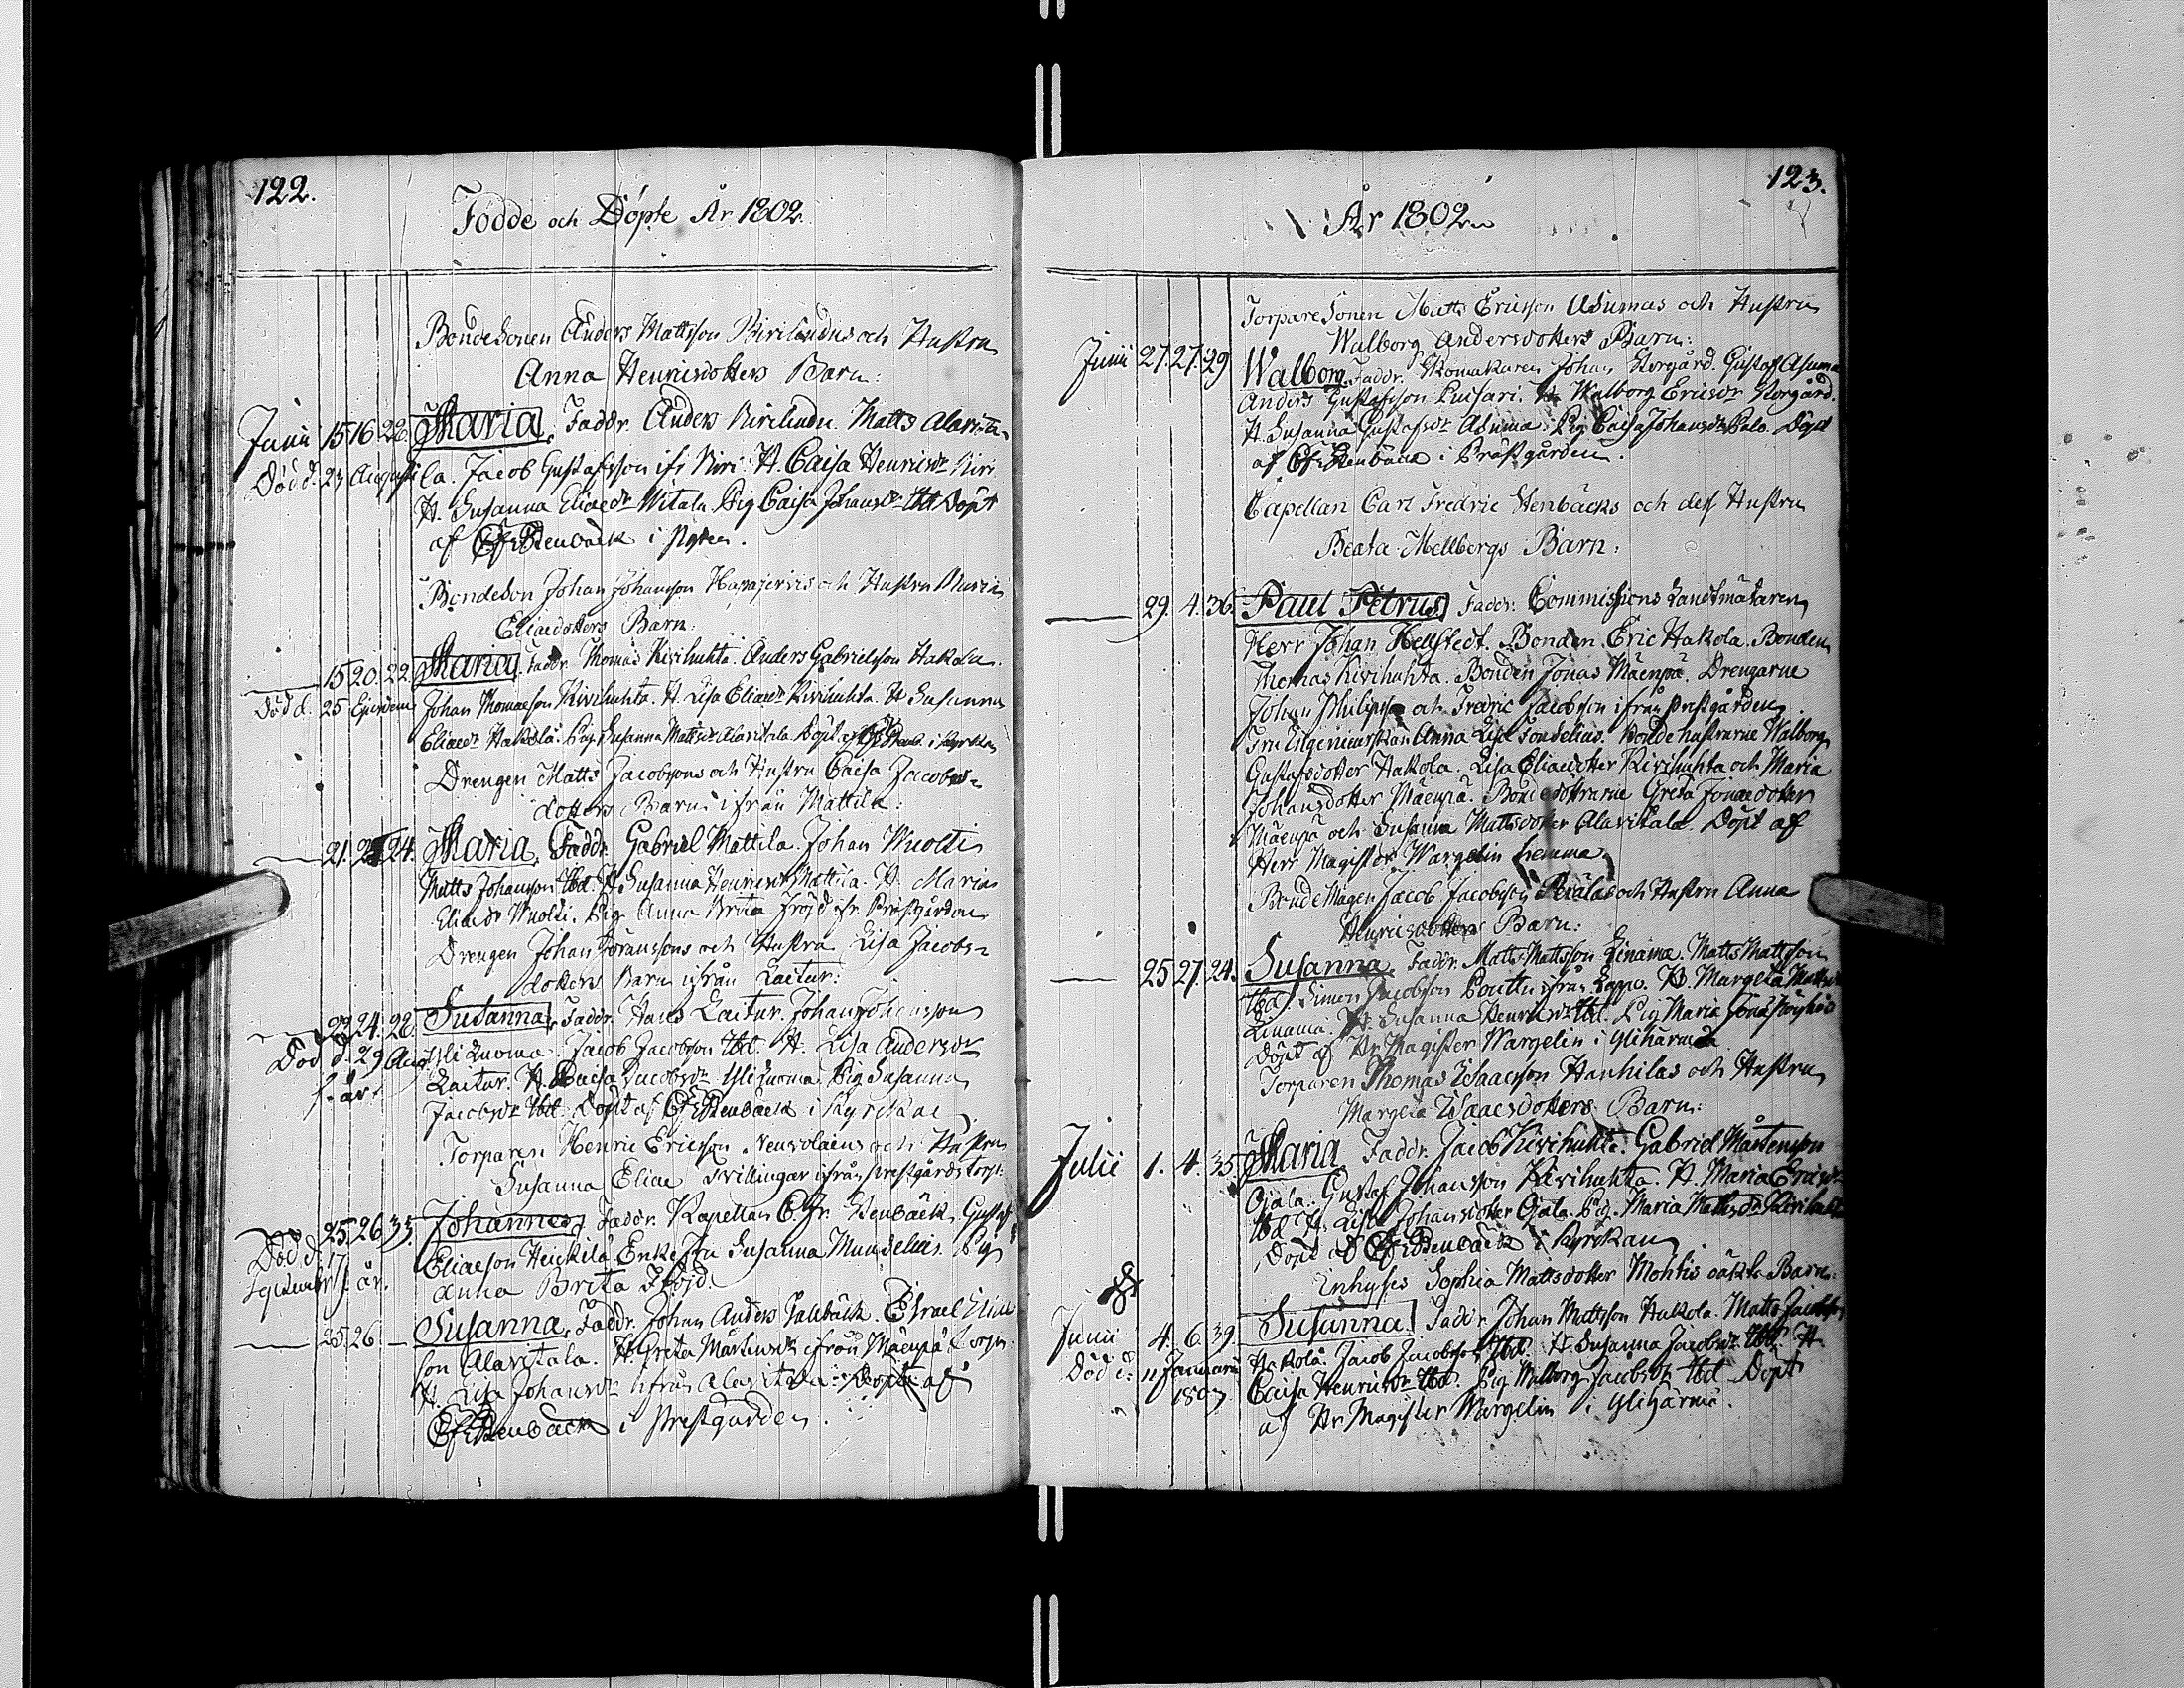 122.
Födde och Döpte År 1802.
Bondesonen Anders Mattsson och Hustru
Anna Henricsdotters Barn:
Junii 15 16 22. Maria. Faddr. Anders Matts Alavita-
Död d. 23 Augusti la. Jacob Gustafsson ifr. H. Caisa Henricsdr
H. Susanna Eliaedr Pig Caisa Johansdr Ibd Döpt
af CFrStenbäck i
Bondeson Johan Johansson och Hustru Maria
Eliaedotters Barn:
15 20. 22. Maria. Faddr. Thomas Kivihuhta. Anders Gabrielsson Hakola.
Död d. 25 Johan Thomaeson Kivihuhta. H. Lisa Eliaedr Kivihuhta. H. Susanna
Eliaedr Hakola. Pig. Susanna Mattsdr Alavitala Döpt af i Kyrckan
Drengen Matts Jacobsons och Hustru Caisa Jacobs-
dotters Barn ifrån Mattila:
21. 24. Maria. Faddr. Gabriel Mattila. Johan Wuolti
Matts Johansson Ibd. H. Susanna Henricsdr Mattila. H. Maria
Eliaedr Wuolti. Pig Anna Brita Fröjd ifr. Präsgården
Drengen Johan Göranssons och Hustru Lisa Jacobs-
dotters Barn ifrån Laitur:
22 24. 28. Susanna. Faddr. Hans Laitur. Johan Johansson
Död d. 29 Aug Yliluoma. Jacob Jacobson Ibd. H. Lisa Andersdr
s. år. Laitur. H. Caisa Jacobsdr Yliluoma. Pig Susanna
Jacobsdr Ibd. Döpt af CFrStenbäck i Kyrckan
Torparen Henric Ericsson och Hustru
Susanna Eliae Tvillingar ifrån prestgårds torp:
25. 26 33. Johannes, Faddr. Kapellan C. Fr. Stenbäck, Gustaf
Död d. 17 Eliaeson Heickilä Enke Fru Susanna Mundelius. Pig
Septembr s. år. Anna Brita Fröjd.
25. 26. — Susanna, Faddr. Johan Anders Israel Eliae
son Alavitala. H. Greta Mårtensdr ifrån Mäenpä Torp.
H. Lisa Johansdr ifrån Alavitala. Döpte af
CFrStenbäck i prestgården.
123.
År 1802.
Torpare Sonen Matts Ericsson Asumas och Hustru
Walborg Andersdotters Barn:
Junii 27. 27. 29 Walborg. Faddr. Skomakaren Johan Storgård. Gustaf Asuma
Anders Gustafsson H. Walborg Ericsdr Storgård.
H. Susanna Gustafsdr Asuma. Pig Caisa Johansdr Palo. Döpt
af CFrStenbäck i Prästgården.
Capellan Carl Fredric Stenbäcks och dess Hustru
Beata Mellbergs Barn:
29. 4. 36. Paul Petrus, Faddr. Commissions Landtmätaren
Herr Johan Hellstedt. Bonden Eric Hakola. Bonden
Thomas Kivihuhta. Bonden Jonas Mäenpä. Drengarne
Johan Philipss och Fredric Jacobson ifrån prestgården.
Fru Ingenieurskan Anna Lisa Fondelius. Bonde hustrurne Walborg
Gustafsdotter Hakola. Lisa Eliaedotter Kivihuhta och Maria
Johansdotter Mäenpä. Bondedottrarne Greta Jonaedotter
Mäenpä och Susanna Mattsdotter Alavitala. Döpt af
Herr Magister Wargelin hemma
Bonde Magen Jacob Jacobsson Peräläs och Hustru Anna
Henricsdotters Barn:
25 27. 24. Susanna, Faddr. Matts Mattsson Linama. Matts Mattsson
Ibd. Simon Jacobsson Pouttu ifrån Lappo. H. Margeta
Linama. H. Susanna Henricsdr Ibd. Pig Maria
Döpt af Hr Magister Wargelin i Ylihärmä
Torparen Thomas Isaacsson Hanhilas och Hustru
Margeta Isaacsdotters Barn:
Julii 1. 4. 35. Maria Faddr. Jacob Kivihuhta. Gabriel Mårtensson
Ojala. Gustaf Johansson Kivihuhta. H. Maria Ericsdr
Ibd H. Lisa Johansdotter Ojala. Pig. Maria Mattsdr Kivihuhta
Döpt af CFrStenbäck i Kyrckan
Inhyses Sophia Mattsdotter oäkta Barn:
Junii 4. 6. 39. Susanna. Faddr. Johan Mattsson Hakola. Matts Jacobson
Död d: 11 Januarii Hakola. Jacob Jacobsson Ibd. H. Susanna Jacobsdr Ibd. H.
1803 Caisa Henricsdr Ibd. Pig Walborg Jacobsdr Ibd Döpt
af Hr Magister Wargelin i Ylihärmä.